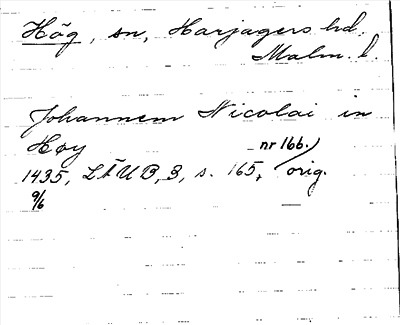 Hög, sn, Harjagers hd.
Malm. l.
Johannem Nicolai in
Høy
nr 166.)
1435, LÄUB, 3, s. 165, orig.
9/6